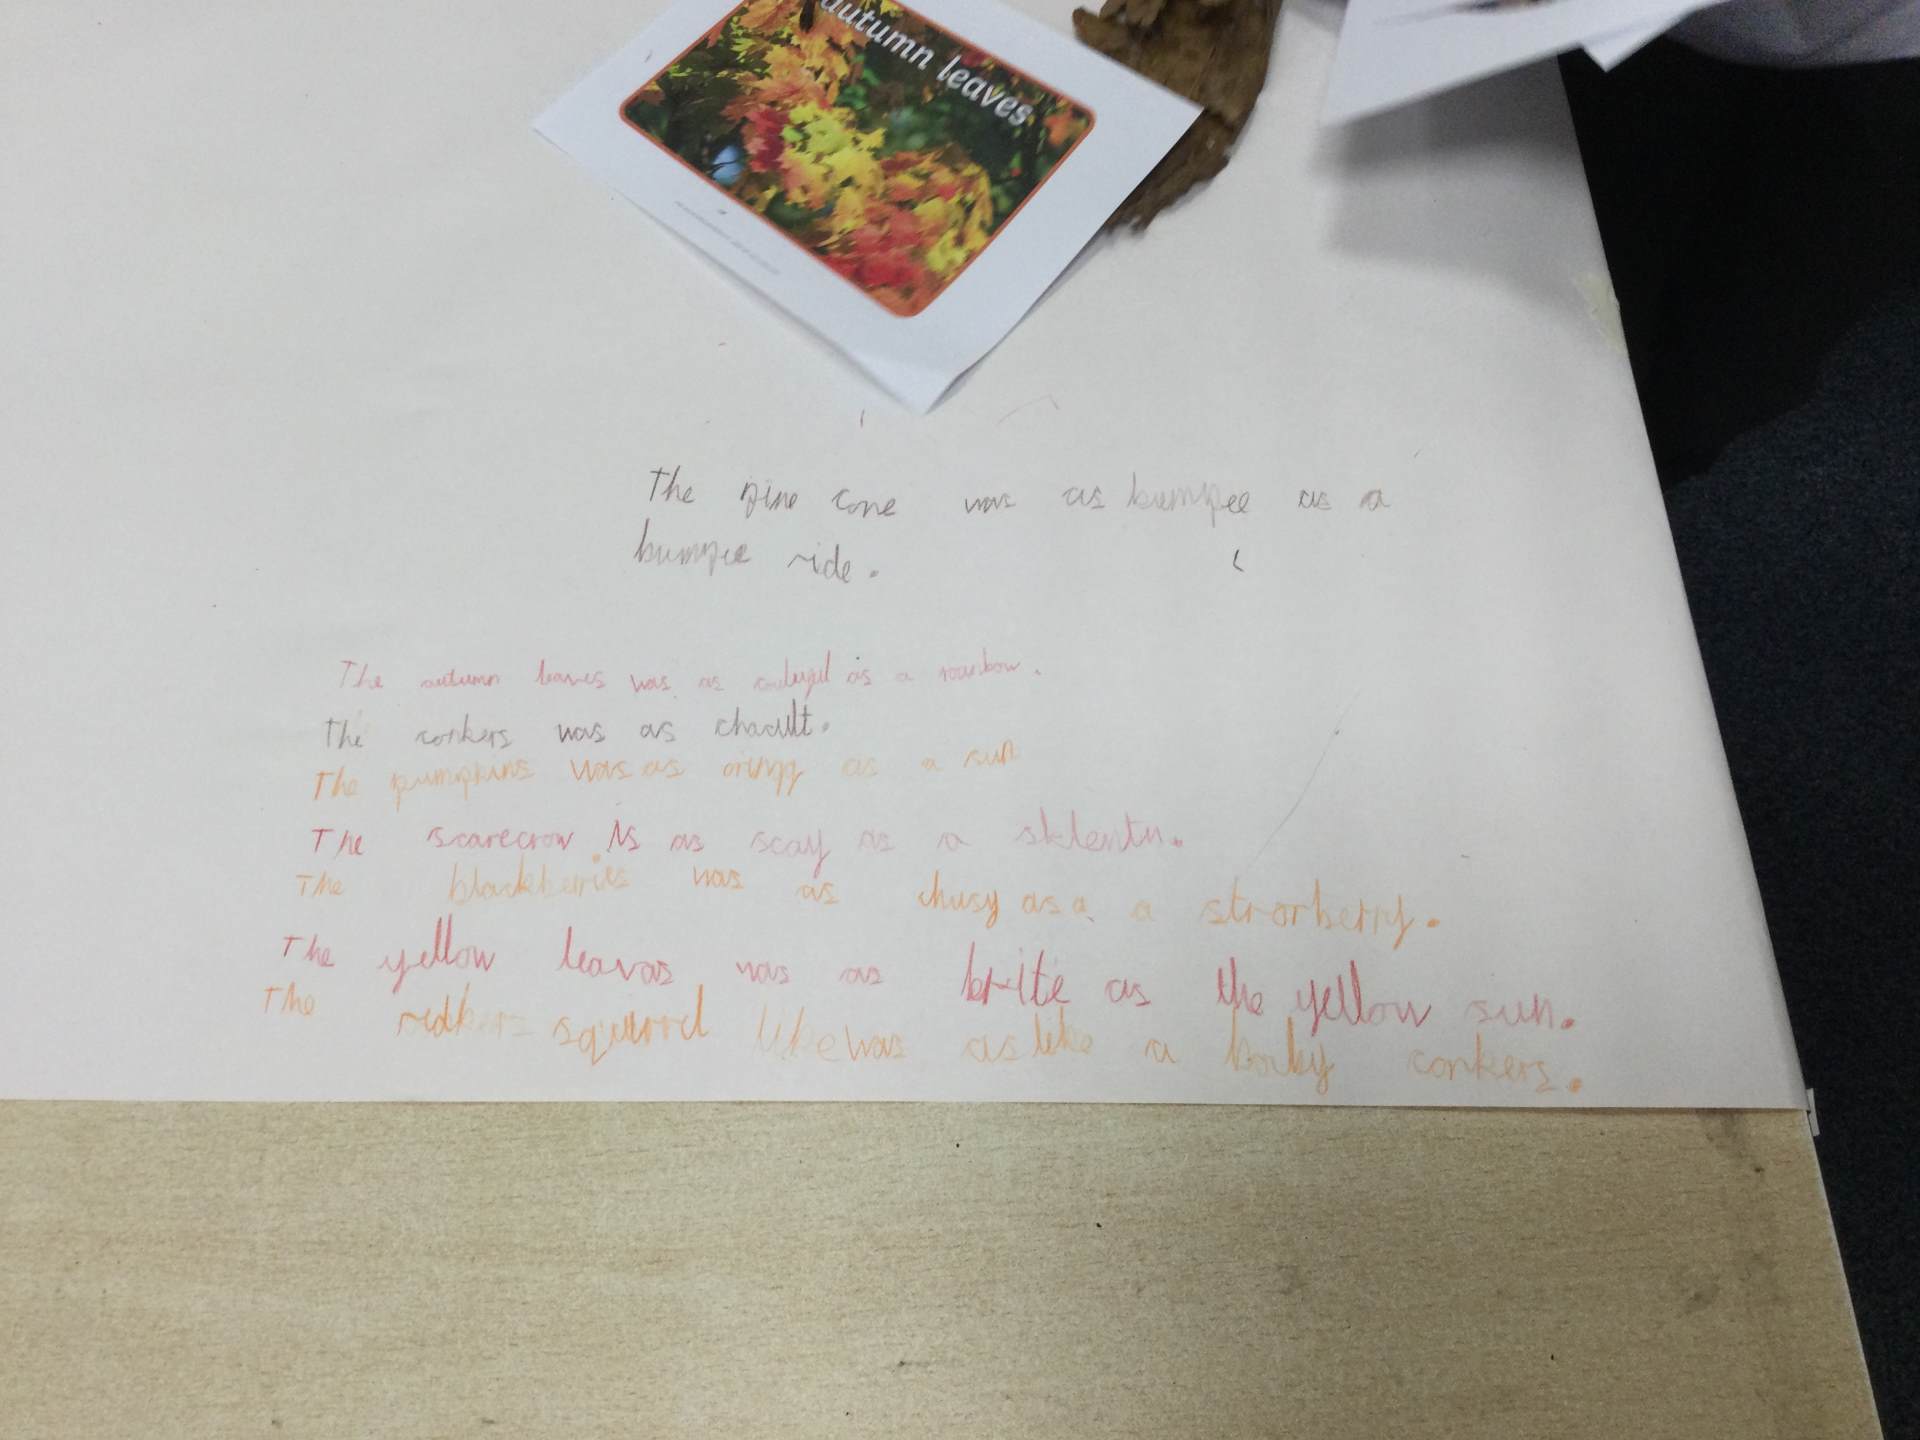 autumn leaves
The pine cone was as bumpee as a
bumpee ride.
The autumn leaves was as as a
The conkers was as
The pumpkins was as as a sun
The scarecrow is as scay as a
The blackberries was as as a a strorberry.
The yellow was as brite as the yellow sun.
The like was as like a conkers.